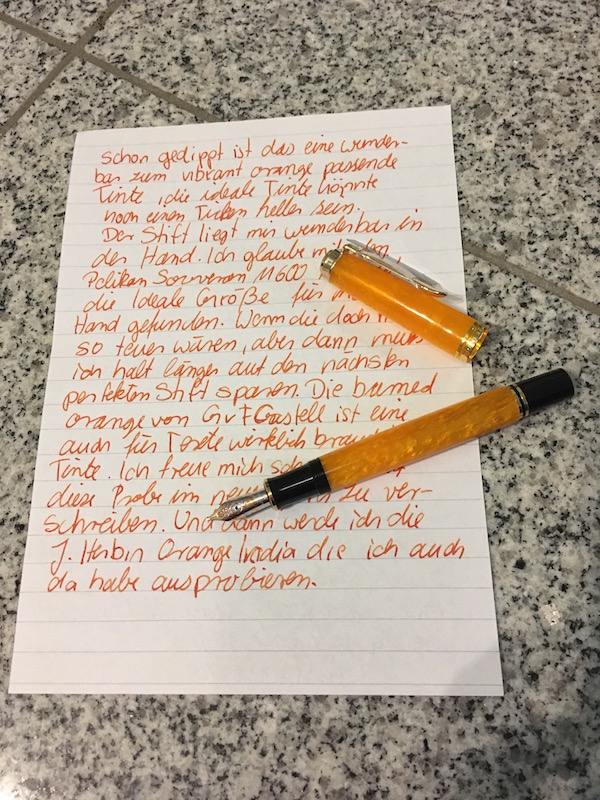 schon gedippt ist das eine wunder-
bar zum vibrant orange passende
Tinte, die ideale Tinte könnte
noch einen Ticken heller sein.
Der Stift liegt mir wunderbar in
der Hand. Ich glaube mit
Pelikan Souverän M600
die Ideale Größe für
Hand gefunden. Wenn die doch
so teuer wären, aber dann muss
ich halt länger auf den nächsten
perfekten Stift sparen. Die burned
orange von GvFCastell ist eine
auch für Texte wirklich
Tinte. Ich freue mich
diese Probe im zu ver-
schreiben. Und dann werde ich die
J. Herbin Orange Indien die ich auch
da habe ausprobieren.